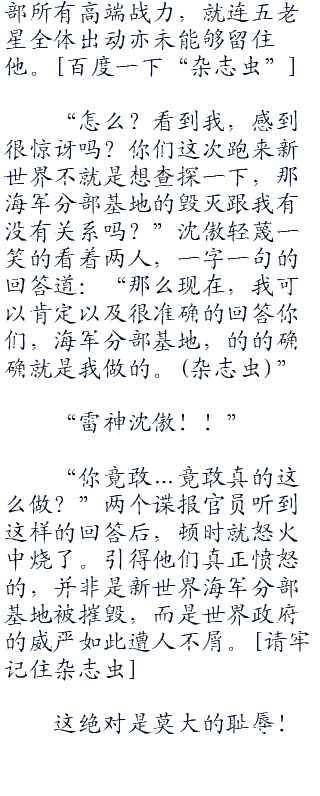 部所有高端战力，就连五老
星全体出动亦未能够留住
他。[百度一下“杂志虫”]
“怎么？看到我，感到
很惊讶吗？你们这次跑来新
世界不就是想查探一下，那
海军分部基地的毁灭跟我有
没有关系吗？”沈傲轻蔑一
笑的看着两人，一字一句的
回答道：“那么现在，我可
以肯定以及很准确的回答你
们，海军分部基地，的的确
确就是我做的。(杂志虫)”
“雷神沈傲！！”
“你竟敢…竟敢真的这
么做？”两个谍报官员听到
这样的回答后，顿时就怒火
中烧了。引得他们真正愤怒
的，并非是新世界海军分部
基地被摧毁，而是世界政府
的威严如此遭人不屑。[请牢
记住杂志虫]
这绝对是莫大的耻辱！